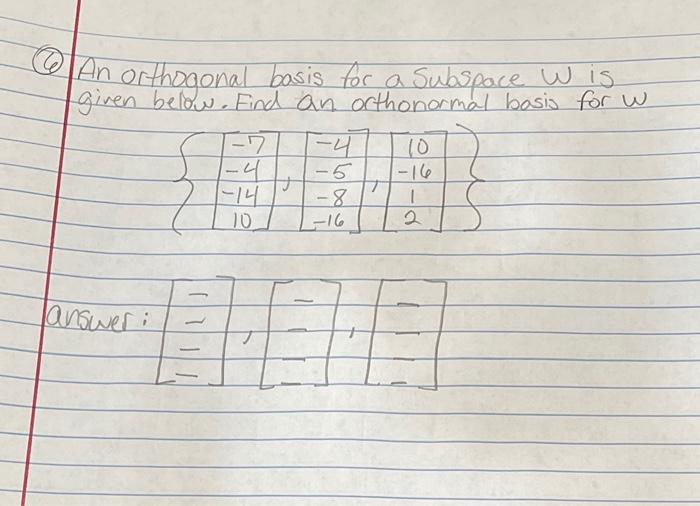 6 An orthogonal basis for a Subspace W is
given below. Find an orthonormal basis for W
{ [-7 , [-4 , [10 }
-4 -5 -16
-14 -8 1
10] -16] 2]
answer: [ _ , [ _ , [ _
_ _ _
_ _ _
_ ] _ ] _ ]